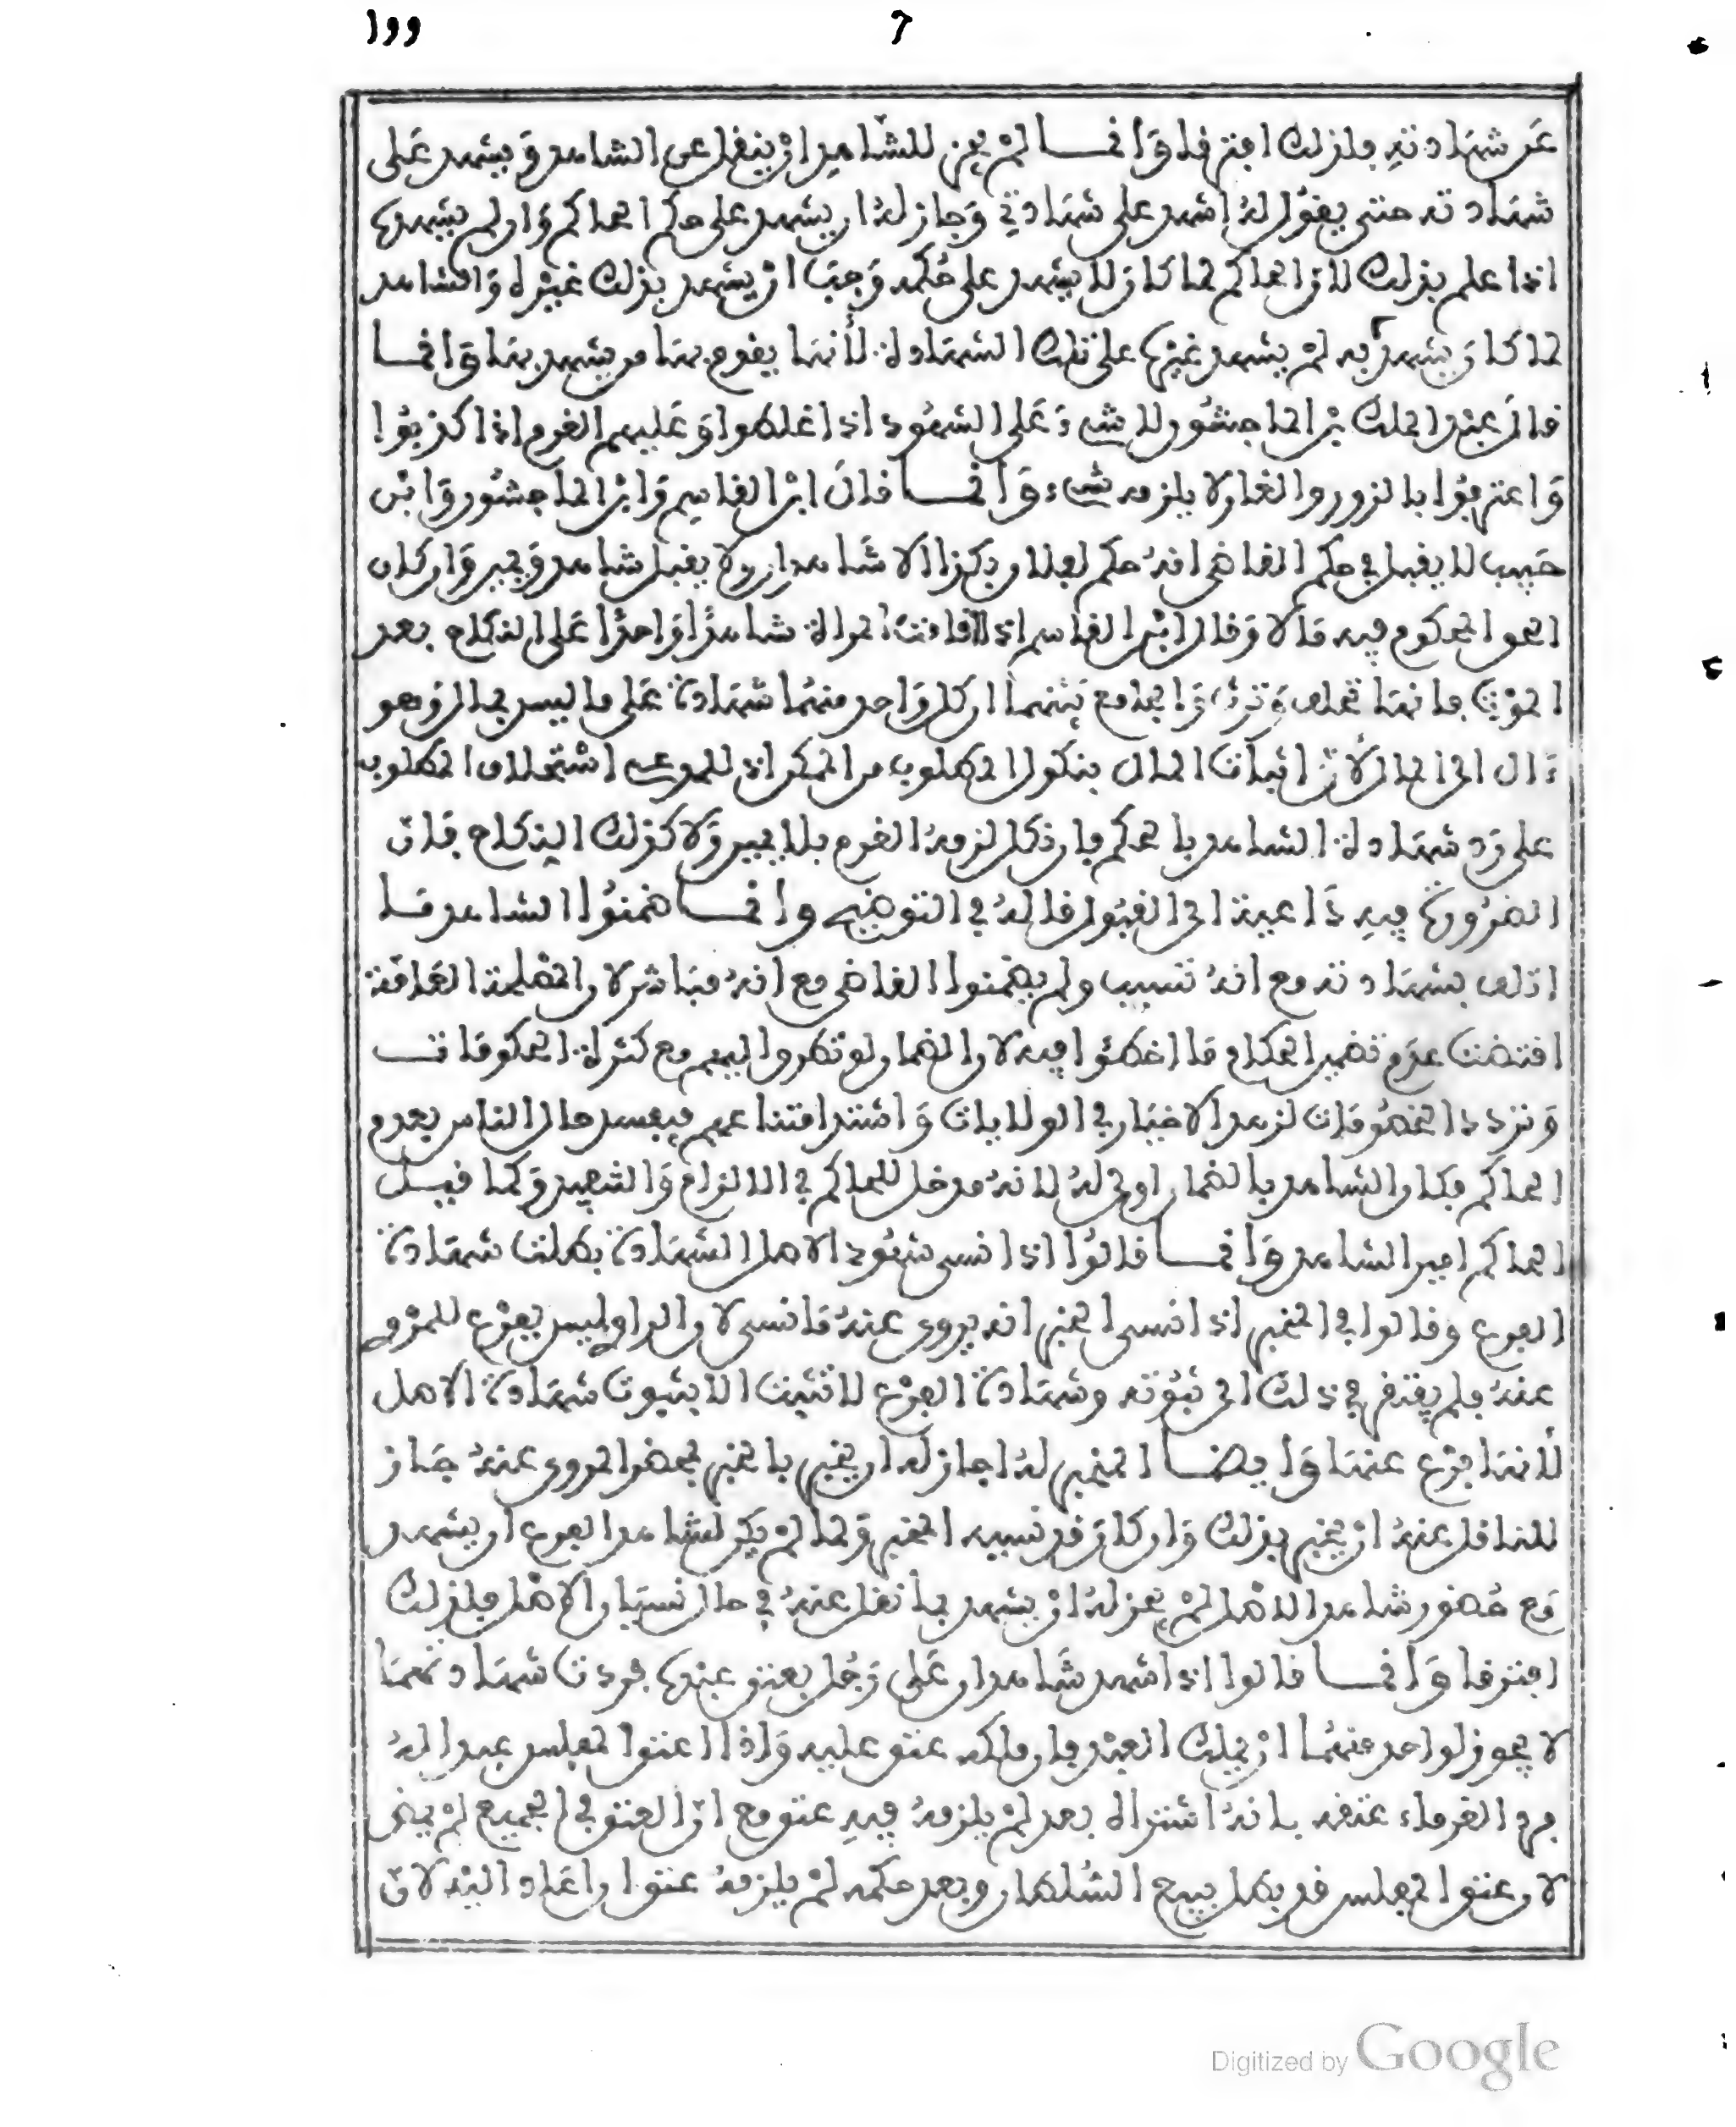 ١٩٩ ٦
عَن شهَادتِهِ فلذلك افترقا وَإنمـــا لمْ يجز للشَّاهِدِ أنْ ينقل عن الشاهد وَيشهد عَلى
شهَادته حتى يقول لهُ اشهد على شهَادتي وَجاز لهُ ان يشهد على حكم الحاكم وَان لم يشهدهُ
اذا علم بذلك لانَّ الحاكم لما كانَ لا يشهد على حُكمه وَجبَ انْ يشهد بذلك غيْره وَالشاهد
لما كانَ يشهد به لمْ يشهد غيْرهُ على تلك الشهادة لأنهَا يقوم بهَا من يشهد بهَا وَإنمـــا
قالَ عبْد الملك بْن الماجشُون لا شيءَ عَلى الشهُود اذا غلطوا وَعَليهم الغرم اذا كذبُوا
وَاعترفُوا بالزور والغار لا يلزمه شيء وَإنمـــا قالَ ابْن القاسِم وَابْن الماجشُون وَابْن
حَبيب لا يقبل في حكم القاضي انهُ حكم لفلان بكذا الا شَاهدان ولا يقبل شاهد وَيمين وَان كان
الحق المحكوم فيه مَالا وَقال ابْن القاسم اذا اقامتْ المراة شاهدًا وَاحدًا عَلى النكاح بعد
الموْت فانهَا تحلف وَترثُ وَالجامع بَيْنهما ان كل وَاحد منهُما شهَادة عَلى ما ليس بمال وَهو
ءَال الى المال لأنّ اثبات المال بنكول المطلوب من الممكن اذ للمدعي اسْتحلاف المطلوب
على رَد شهَادة الشاهد بالحكم فان نكل لزمهُ الغرم بلا يمين وَلا كذلك النكاح فَانّ
الضرُورة فيهِ دَاعية الى القبُول قالهُ في التوضيح وإنمـــا ضمنُوا الشاهد مَـا
اتلف بشهَادته مع انهُ تسبب ولم يضمنوا القاضي مع انهُ مبَاشر لان المصْلحة العَامّة
اقتضت عدَم تضمين الحكام مَا اخطئوا فيه لان الضمان لو تطرق اليهم مع كثرة الحكومَات
وَتردد الخصُومَات لزهد الاخيَار في الولايات وَاشتد امتناعهم فيفسد حال الناس بعدم
الحاكم فكان الشاهد بالضمان اولى لهُ لانهُ مدخل للحاكم في الالزام وَالتنفيذ وَكما قيـل
الحاكم اسير الشاهد وَإنمـــا قالوُا اذا نسى شهُود الاصل الشهَادة بطلت شهَادة
الفرع وقالوا في المخبر اذا انسى الخبر انه يروى عنهُ مَا نسى لان الراوي ليس بفرْع للمرْوي
عنهُ فلم يفتقر في ذلك الى ثبُوته وشهَادة الفرْع لا تثبت الا بثبوت شهَادة الاصل
لأنهَا فرْع عنهَا وَأيضـــا المخبر لهُ اجاز له ان يخبر بالخبر بمحضر المروى عنهُ جَاز
للناقل عنهُ انْ يخبر بذلك وَان كانَ قد نسيه المخبر وَلما لمْ يكن لشاهد الفرع ان يشهد
مَع حُضور شاهد الاصل لمْ يجز لهُ انْ يشهد بما نقل عنهُ في حال نسيَان الاصْل فلذلك
افترقا وَإنمـــا قالوا اذا شهد شَاهدان عَلى رَجُل بعتق عبْدهُ فردت شهَادتهمَا
لا يجوز لواحد منهُما انْ يملك العبْد فان ملكه عتق عليه وَاذا اعتق المفلس عبدا لهُ
فرد الغرماء عتقه بانهُ اشتراه بعد لمْ يلزمهُ فيهِ عتق مع انّ العتق في الجميع لمْ يمض
لان عتق المفلس قد بطل ببيع السُلطان وبعد حكمه لمْ يلزمهُ عتق ان اعَاد اليْه لانّ
Digitized by Google